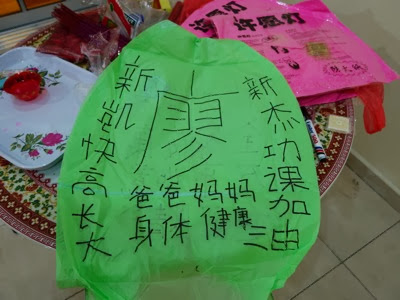 许愿灯
廖
新凯快高长大
新杰功课加油
爸爸妈妈
身体健康